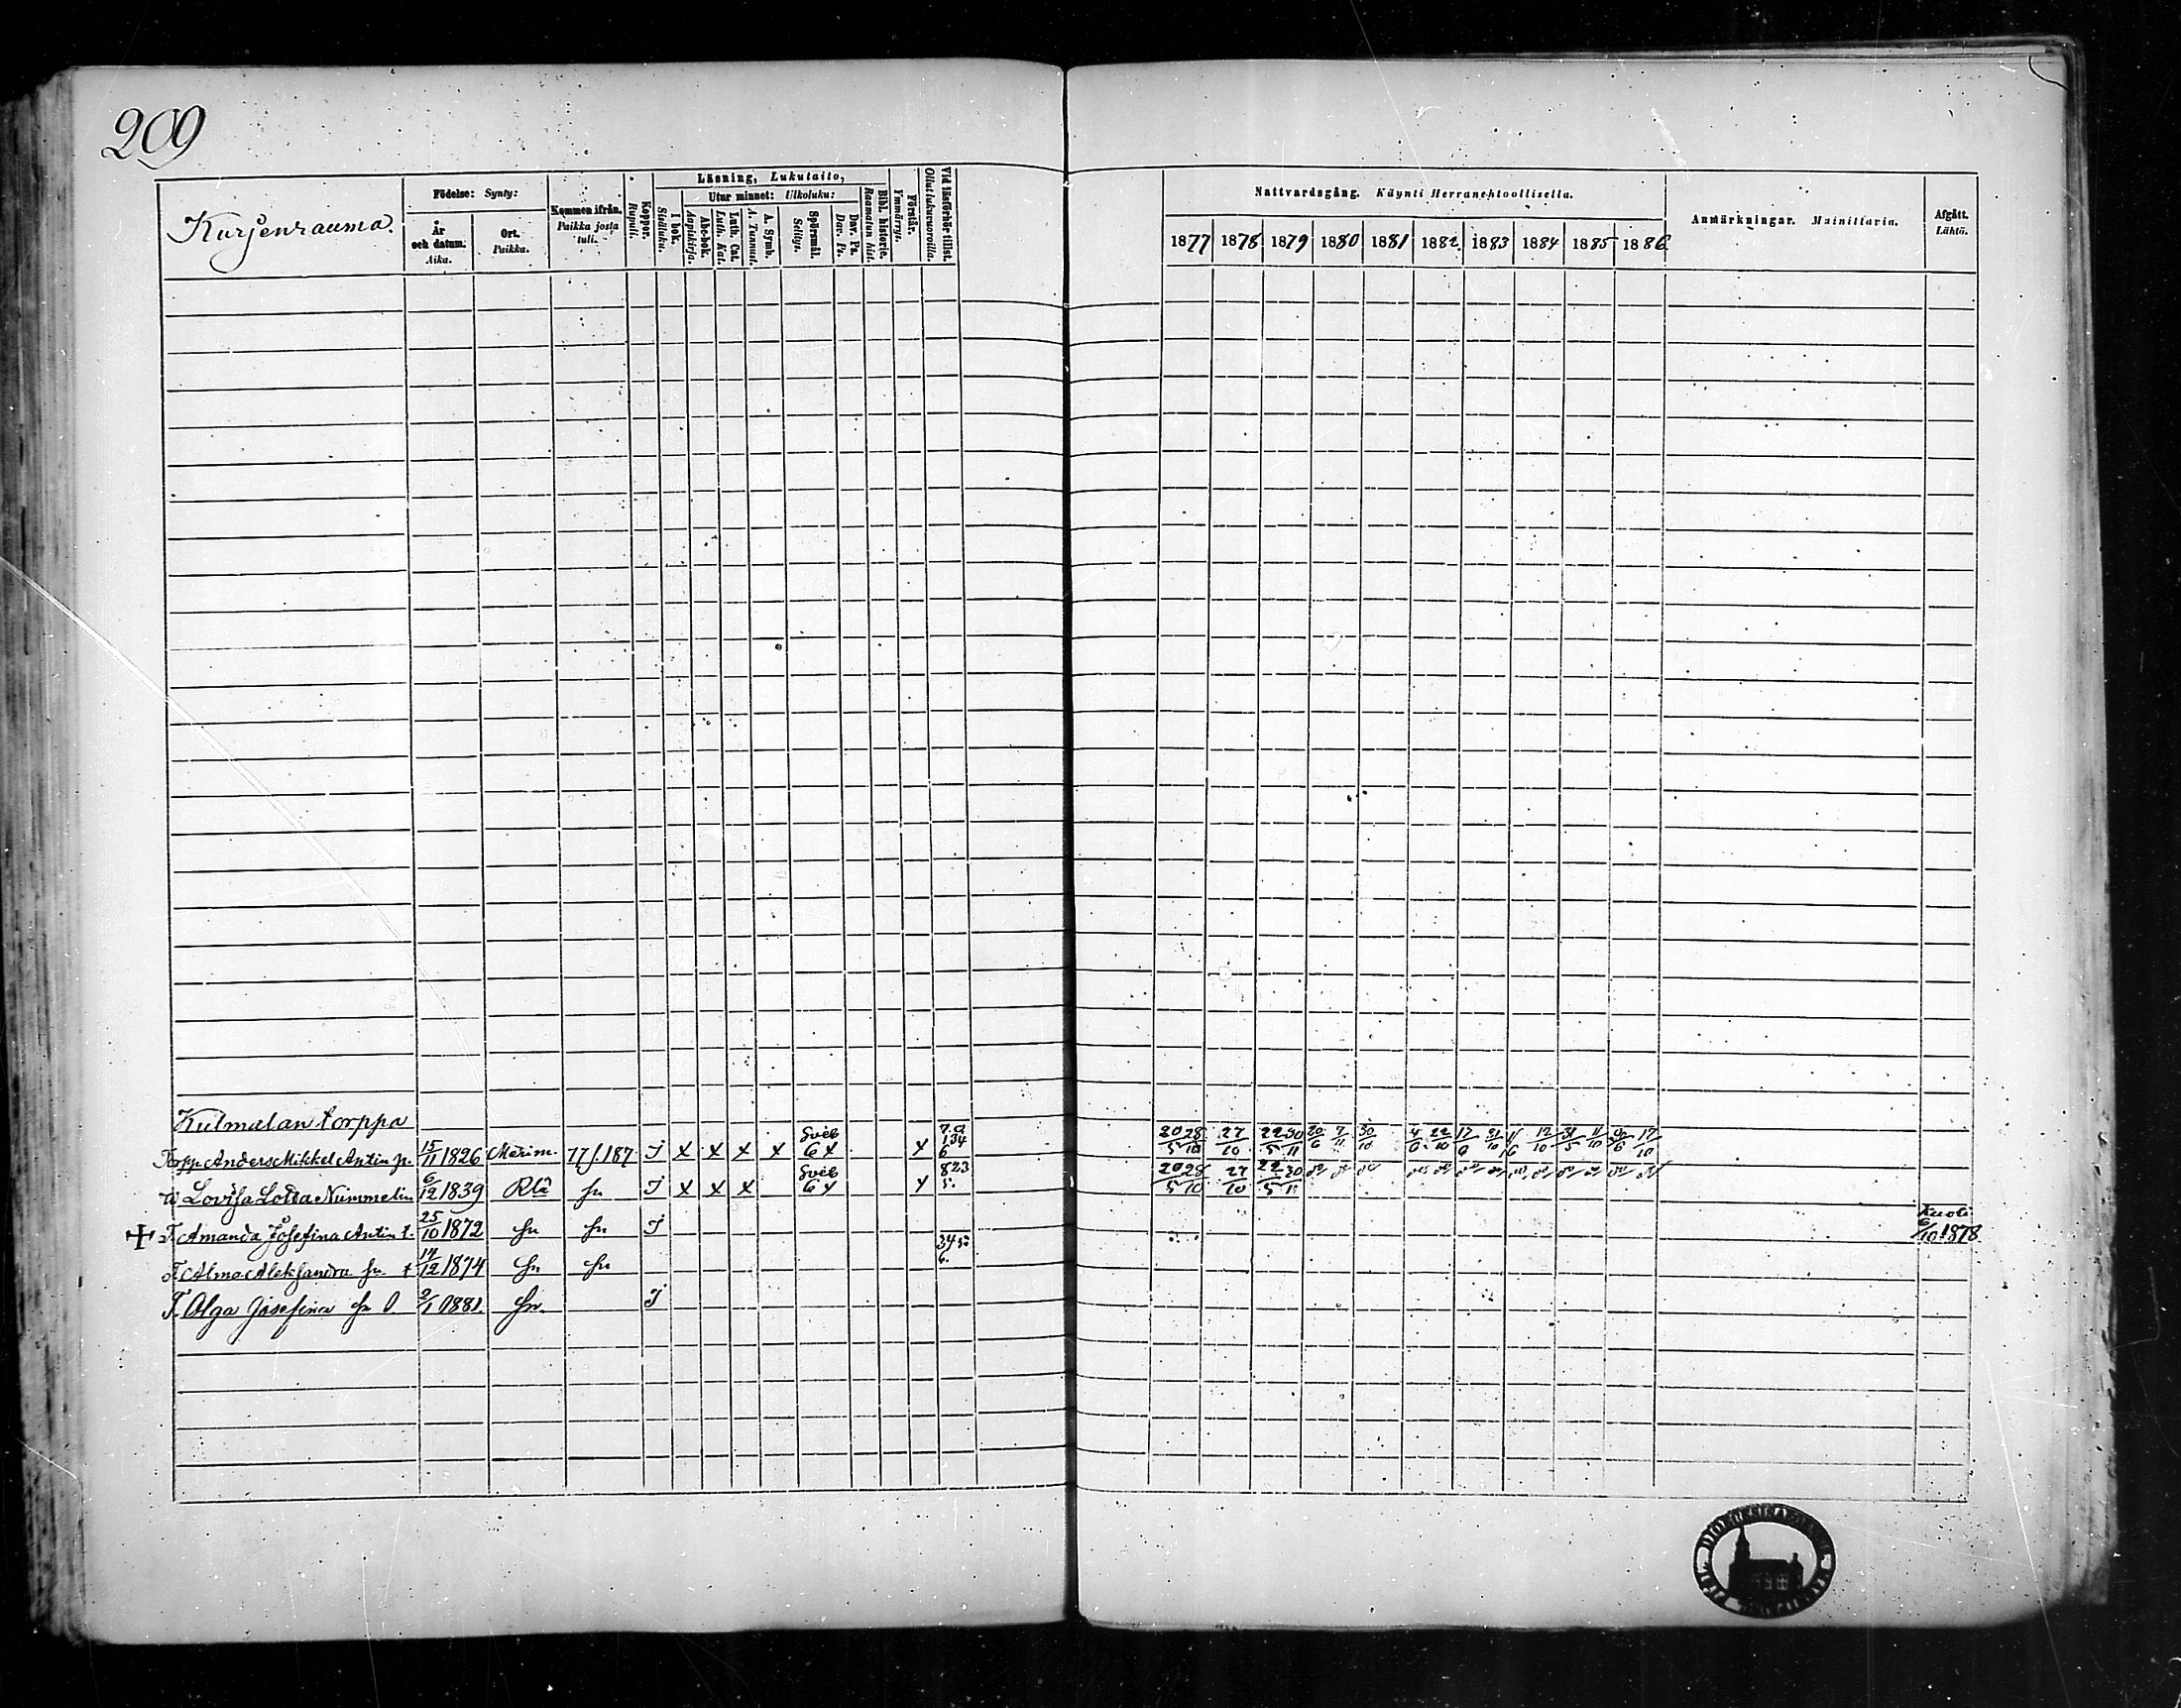 209
Kurjenrauma.
Födelse: Synty:
År och datum. Aika.
Ort. Paikka.
Kommen ifrån. Paikka josta tuli.
Koppor. Rupuli.
Läsning, Lukutaito,
I bok. Sisäluku.
Utur minnet: Ulkoluku:
Abc-bok. Aapiskirja.
Luth. Cat. Luth. Kat.
A. Symb. A. Tunnust.
Spörsmål. Selitys.
Dav. Ps. Dav. Ps.
Bibl. historie. Raamatun hist.
Förstår. Ymmärrys.
Vid läsförhör tillst. Ollut lukuvuoroilla.
Nattvardsgång. Käynti Herranehtoollisella.
1877 1878 1879 1880 1881 1882 1883 1884 1885 1886
Anmärkningar. Mainittavia.
Afgått. Lähtö.
Kulmalan torppa
Torpp. Anders Mikkel Antin p. 15/11 1826 Merim. 77 f. 187 J x x x x Sveb 6 x x 20/5 28/10 27/10 22/5 30/11 20/6 7/11 30/10
w Lovisa Lotta Nummelin 6/12 1839 Rla J x x x Sveb 6 x x 823 5. 20/5 28/10 27/10 22/5 30/11
T. Amanda Josefina Antin t. 25/10 1872 J Kuoli 6/10 1878
T. Alma Aleksandra t 14/12 1874 345 6.
T. Olga Josefina 2/1 1881 J